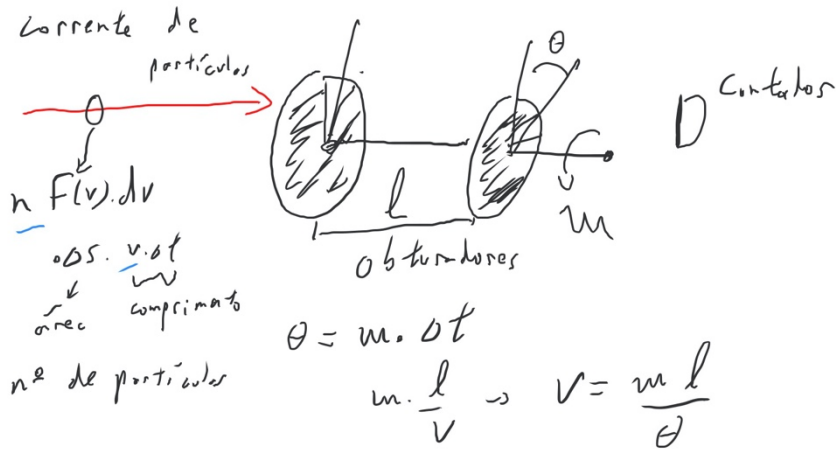 Corrente de
partículas
θ
Contador
n F(v).dv
l
m
.Δs. v.Δt
obturadores
área
comprimento
θ = m. Δt
nº de partículas
m. l/v → v = m l/θ